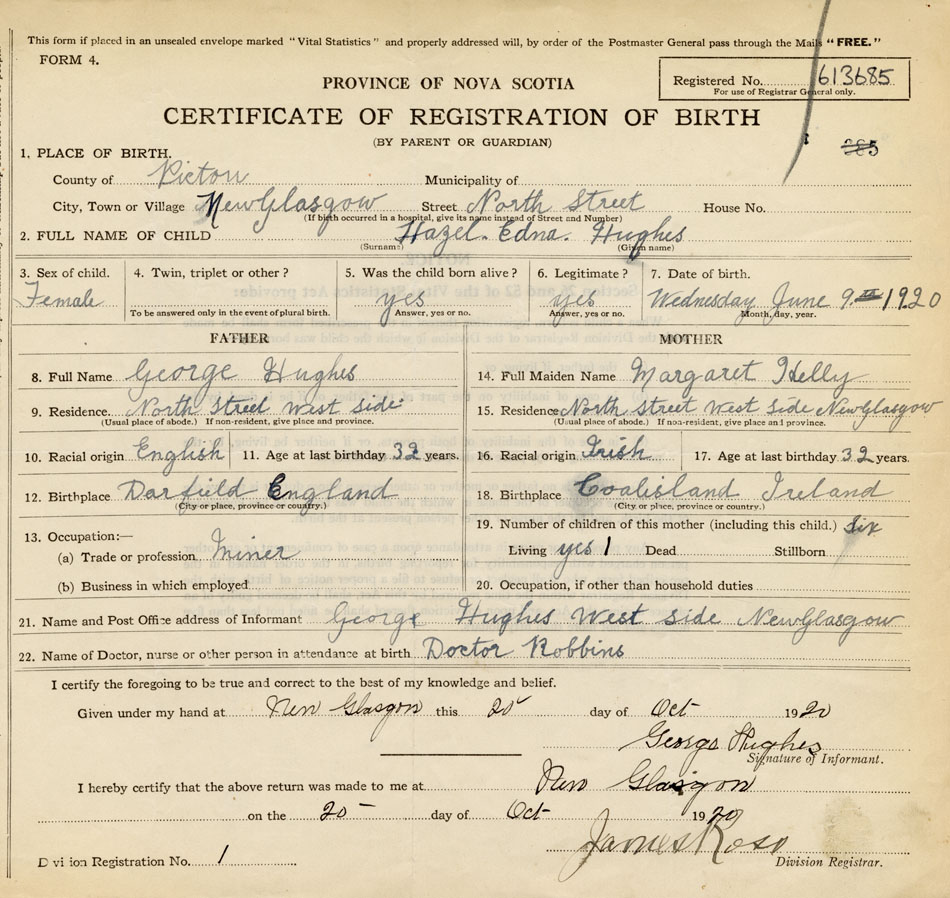 This form if placed in an unsealed envelope marked "Vital Statistics" and properly addressed will, by order of the Postmaster General pass through the Mails "FREE."
FORM 4.
PROVINCE OF NOVA SCOTIA
Registered No. 613685
For use of Registrar General only.
CERTIFICATE OF REGISTRATION OF BIRTH
(BY PARENT OR GUARDIAN)
285
1. PLACE OF BIRTH.
County of Pictou Municipality of
City, Town or Village New Glasgow Street North Street House No.
(If birth occurred in a hospital, give its name instead of Street and Number)
2. FULL NAME OF CHILD Hazel. Edna. Hughes
(Surname) (Given name)
3. Sex of child. 4. Twin, triplet or other? 5. Was the child born alive? 6. Legitimate? 7. Date of birth.
Female yes yes Wednesday June 9th 1920
To be answered only in the event of plural birth. Answer, yes or no. Answer, yes or no. Month, day, year.
FATHER MOTHER
8. Full Name George Hughes 14. Full Maiden Name Margaret Kelly
9. Residence. North Street West side 15. Residence North Street West Side New Glasgow
(Usual place of abode.) If non-resident, give place and province. (Usual place of abode.) If non-resident, give place and province.
10. Racial origin English 11. Age at last birthday 32 years. 16. Racial origin Irish 17. Age at last birthday 32 years.
12. Birthplace Darfield England 18. Birthplace Coalisland Ireland
(City or place, province or country.) (City or place, province or country.)
13. Occupation:— 19. Number of children of this mother (including this child.) Six
(a) Trade or profession Miner Living yes 1 Dead Stillborn
(b) Business in which employed 20. Occupation, if other than household duties
21. Name and Post Office address of Informant George Hughes West side New Glasgow
22. Name of Doctor, nurse or other person in attendance at birth Doctor Robbins
I certify the foregoing to be true and correct to the best of my knowledge and belief.
Given under my hand at New Glasgow this 20 day of Oct 1920
George Hughes
Signature of Informant.
I hereby certify that the above return was made to me at New Glasgow
on the 20 day of Oct 1920
James Ross
Division Registrar.
Division Registration No. 1